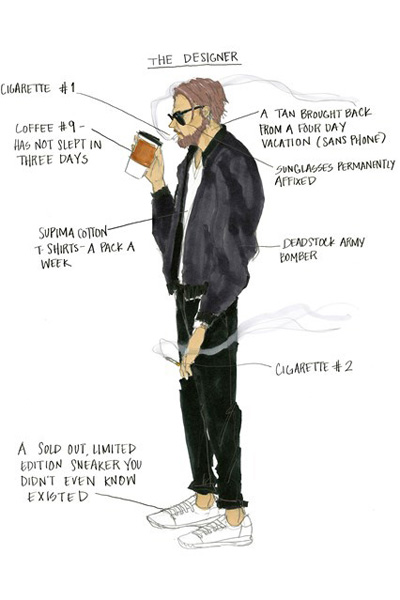 THE DESIGNER
CIGARETTE #1
COFFEE #9-
HAS NOT SLEPT IN
THREE DAYS
A TAN BROUGHT BACK
FROM A FOUR DAY
VACATION (SANS PHONE)
SUNGLASSES PERMANENTLY
AFFIXED
SUPIMA COTTON
T-SHIRTS-A PACK A
WEEK
DEADSTOCK ARMY
BOMBER
CIGARETTE #2
A SOLD OUT, LIMITED
EDITION SNEAKER YOU
DIDN'T EVEN KNOW
EXISTED